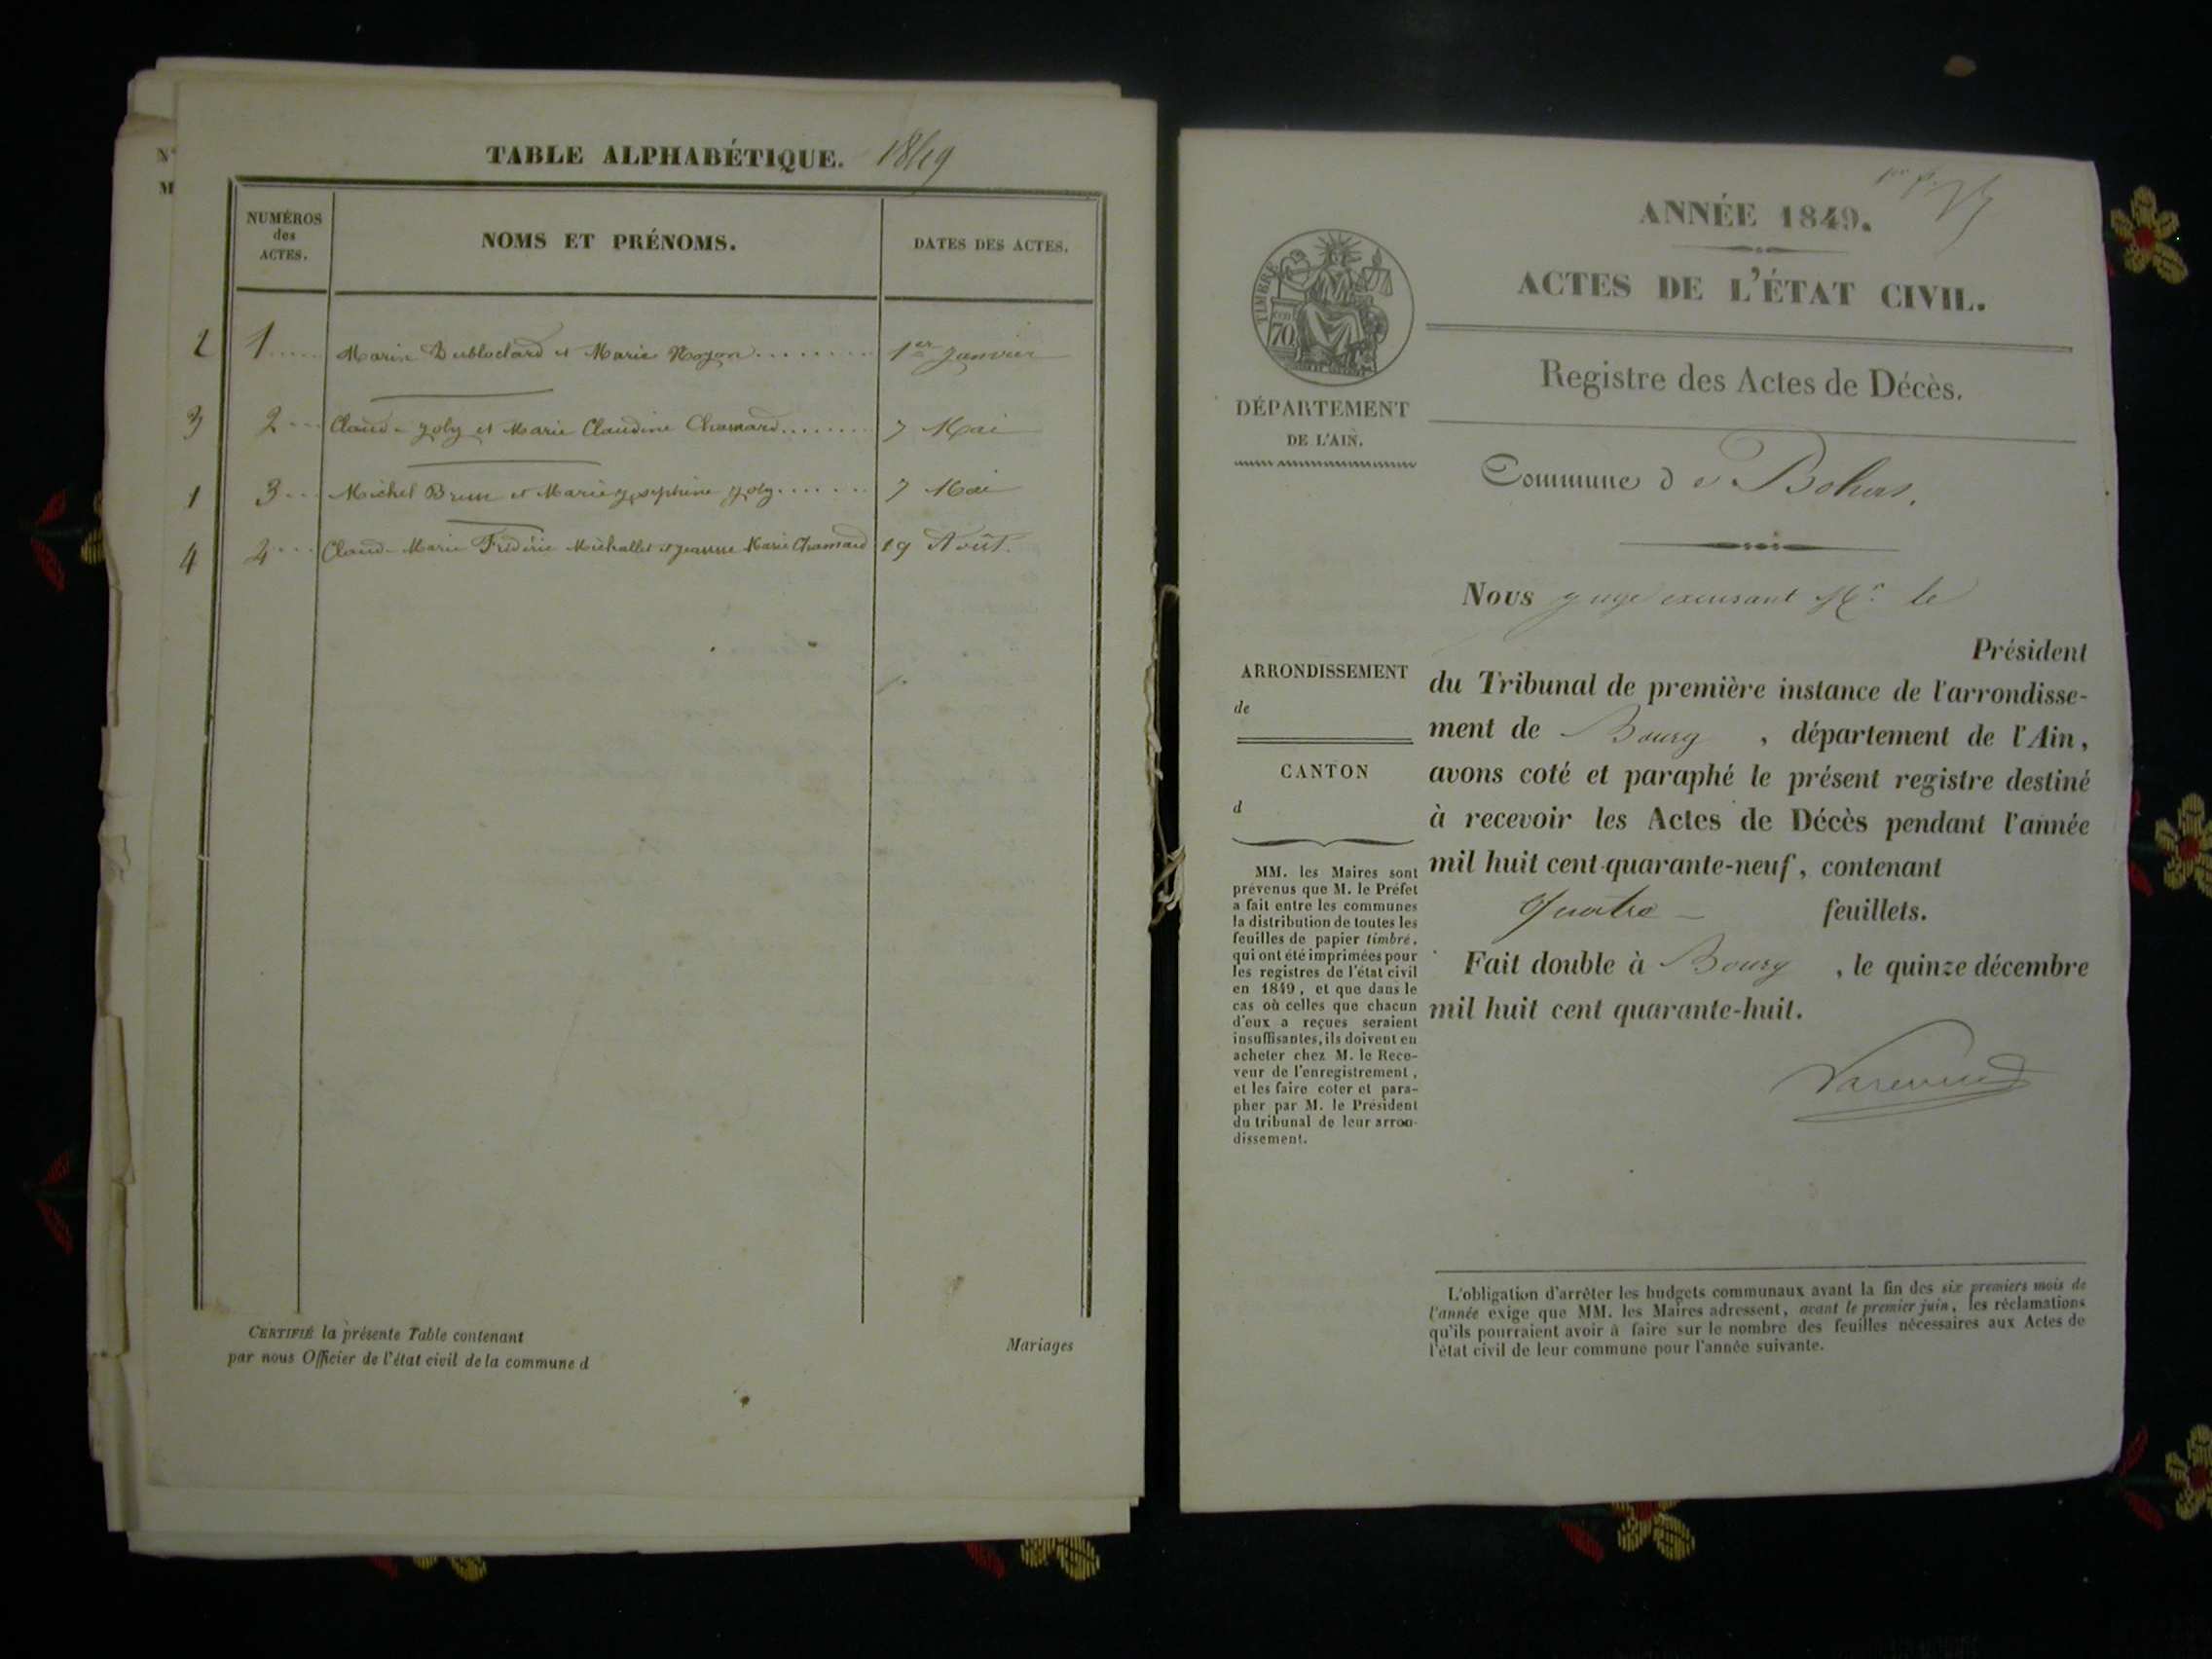 N°
M
TABLE ALPHABÉTIQUE. 1849
NUMÉROS
des
ACTES.
NOMS ET PRÉNOMS.
DATES DES ACTES.
2 1 ..... Marin et Marie ........ 1er Janvier
3 2 ... Claude Joly et Marie Claudine Chanard ....... 7 Mai
1 3 ... Michel Brun et Marie Josephine Joly ...... 7 Mai
4 4 ... Claude Marie Frédéric Michallet et Jeanne Marie Chanard 19 Août.
CERTIFIÉ la présente Table contenant
Mariages
par nous Officier de l'état civil de la commune d
ANNÉE 1849.
ACTES DE L'ÉTAT CIVIL.
TIMBRE
70
Registre des Actes de Décès.
DÉPARTEMENT
DE L'AIN.
Commune de Bohas.
Nous juge excusant Mr. le
Président
du Tribunal de première instance de l'arrondisse-
ment de Bourg, département de l'Ain,
avons coté et paraphé le présent registre destiné
à recevoir les Actes de Décès pendant l'année
mil huit cent quarante-neuf, contenant
quatre feuillets.
Fait double à Bourg, le quinze décembre
mil huit cent quarante-huit.
ARRONDISSEMENT
de
CANTON
d
MM. les Maires sont
prévenus que M. le Préfet
a fait entre les communes
la distribution de toutes les
feuilles de papier timbré,
qui ont été imprimées pour
les registres de l'état civil
en 1849, et que dans le
cas où celles que chacun
d'eux a reçues seraient
insuffisantes, ils doivent en
acheter chez M. le Rece-
veur de l'enregistrement,
et les faire coter et para-
pher par M. le Président
du tribunal de leur arron-
dissement.
L'obligation d'arrêter les budgets communaux avant la fin des six premiers mois de
l'année exige que MM. les Maires adressent, avant le premier juin, les réclamations
qu'ils pourraient avoir à faire sur le nombre des feuilles nécessaires aux Actes de
l'état civil de leur commune pour l'année suivante.